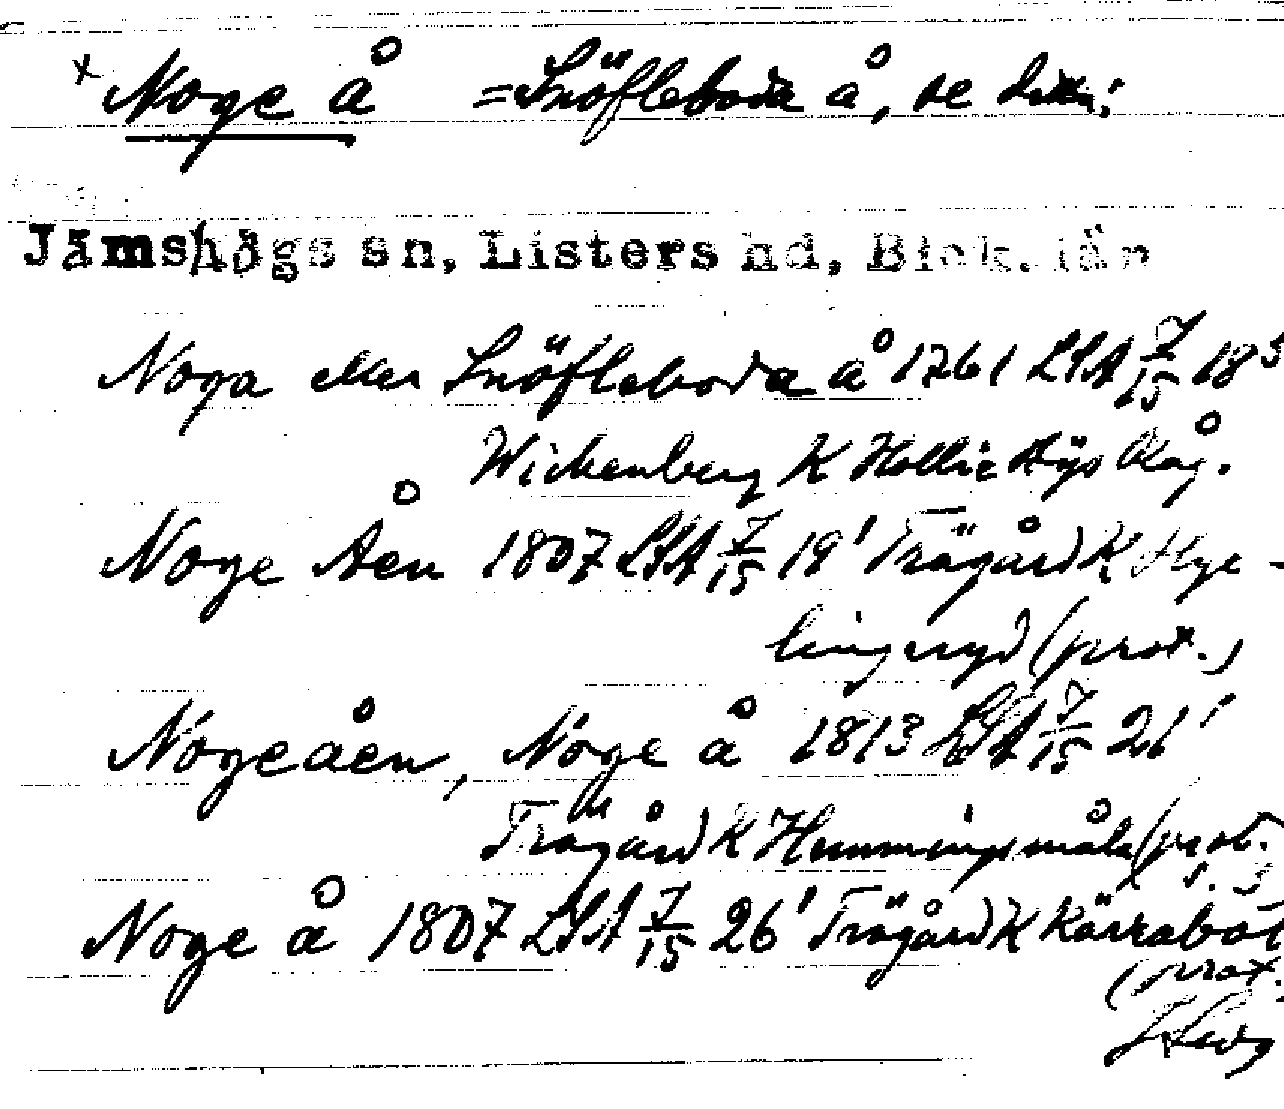 x Noge å = Snöfleboda å, se detta;
Jämshögs sn, Listers hd, Blek. län
Noga eller Snöfleboda å 1761 LSA 7/15 18³
Wickenberg K Hollie Hys Råg.
Noge Åen 1807 LSA 7/15 19¹ Trägård K Hyl-
lingsryd (prot.)
Nogeåen, Noge å 1813 LSA 7/15 21¹
Trägård K Hemmingsmåla (prot.
s. 3)
Noge å 1807 LSA 7/15 26¹ Trägård K Kärrabo
(prot.